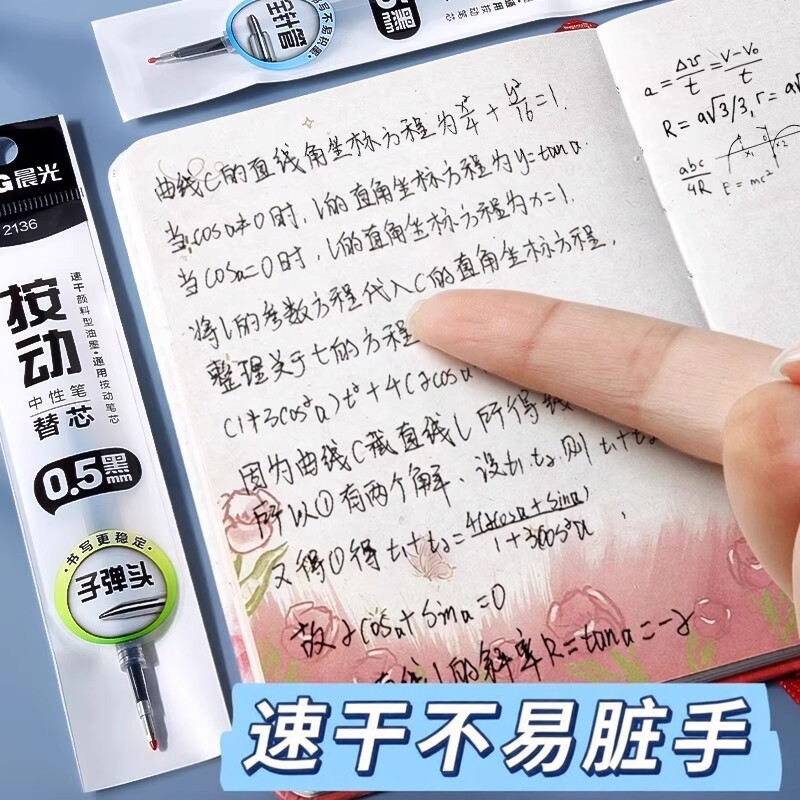 书写不易积墨
全针管
黑
mm
通用按动笔芯
晨光
2136
按动
中性笔
替芯
速干颜料型油墨·通用按动笔芯
0.5黑
mm
书写更稳定
子弹头
曲线C的直线角坐标方程为x²/4+y²/16=1.
当cosα≠0时,l的直角坐标方程为y=tanα
当cosα=0时,l的直角坐标方程为x=1.
将l的参数方程代入C的直角坐标方程,
整理关于t的方程
(1+3cos²α)t²+4(2cosα
因为曲线C截直线l所得线
所以①有两个解、设t₁t₂则t₁+t₂
又得①得t₁+t₂=4(2cosα+sinα)/1+3cos²α,
故2cosα+sinα=0
直线l的斜率k=tanα=-2
a=Δv/t=v-v₀/t
R=a√3/3,r=a√
abc/4R
x₁ 0 x₂
E=mc²
速干不易脏手